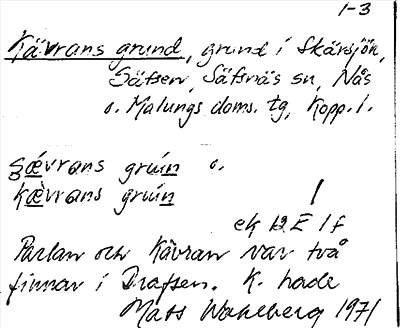 1-3
Kävrans grund, grund i Skärsjön,
Säfsen, Säfsnäs sn, Nås
o. Malungs doms. tg, Kopp. l.
kævrans
ek 12 E 1 f
Parlan och Kävran var två
finnar i Drafsen. K. hade
Mats Wahlberg 1971